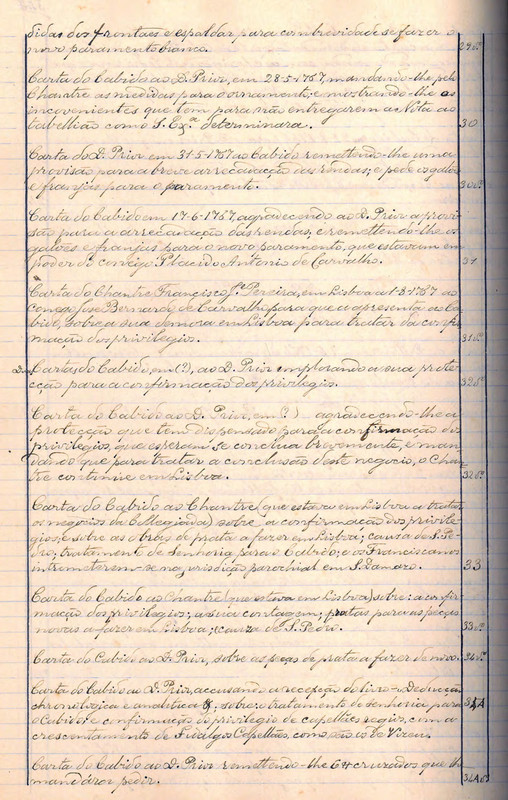 didas dos frontaes e espaldar para com brevidade se fazer o
novo paramento branco. 29vº
Carta do Cabido ao D. Prior, em 28-5-1767, mandando-lhe pelo
Chantre as medidas para o ornamento; e mostrando-lhe os
incovenientes que tem para não entregarem a Nota ao
tabellião como S. Exª determinara. 30
Carta do D. Prior em 31-5-1767 ao Cabido remettendo-lhe uma
provisão para a breve arrecadação das rendas; e pede os galões
e franjas para o paramento. 30vº
Carta do Cabido em 17-6-1767, agradecendo ao D. Prior a provi-
são para a arrecadação das rendas, e remettendo-lhe os
galões e franjas para o novo paramento, que estavam em
poder do conêgo Placido Antonio de Carvalho. 31
Carta do Chantre Francisco Jº Pereira, em Lisboa a 1-8-1767 ao
conego José Bernardo de Carvalho, para que a apresenta ao Ca-
bido, sobre a sua demora em Lisboa para tratar da confir-
mação dos privilegios. 31vº
Carta do Cabido, em (?), ao D. Prior implorando a sua prote-
cção para a confirmação dos privilegios. 32vº
Carta do Cabido ao D. Prior, em (?) agradecendo-lhe a
protecção que tem dispensado para a confirmação dos
privilegios, que esperam se conclua brevemente, e man-
dando que para tratar a conclusão deste negocio, o Chan-
tre continue em Lisboa. 32vº
Carta do Cabido ao Chantre (que estava em Lisboa a tratar
os negocios da Collegiada) sobre a confirmação dos privile-
gios; e sobre as obras de prata a fazer em Lisboa; causa de S. Pe-
dro; tratamento de Senhoria para o Cabido; e os Franciscanos
intrometerem-se na jurisdição parochial em S. Damaso. 33
Carta do Cabido ao Chantre (que estava em Lisboa) sobre: a confir-
mação dos privilegios; a sua contagem; pratas para as peças
novas a fazer em Lisboa; causa de S. Pedro. 33vº
Carta do Cabido ao D. Prior, sobre as peças de prata a fazer de novo. 34vº
Carta do Cabido ao D. Prior, accusando a recepção do livro - Deducção
chronologica e analitica; sobre o tratamento de Senhoria para 34A
o Cabido; e confirmação do privilegio de capellães regios, com a
crescentamento de Fidalgos Capellães, como são os de Vizeu.
Carta do Cabido ao D. Prior remettendo-lhe 64 cruzados que lhe
mandára pedir. 34Avº